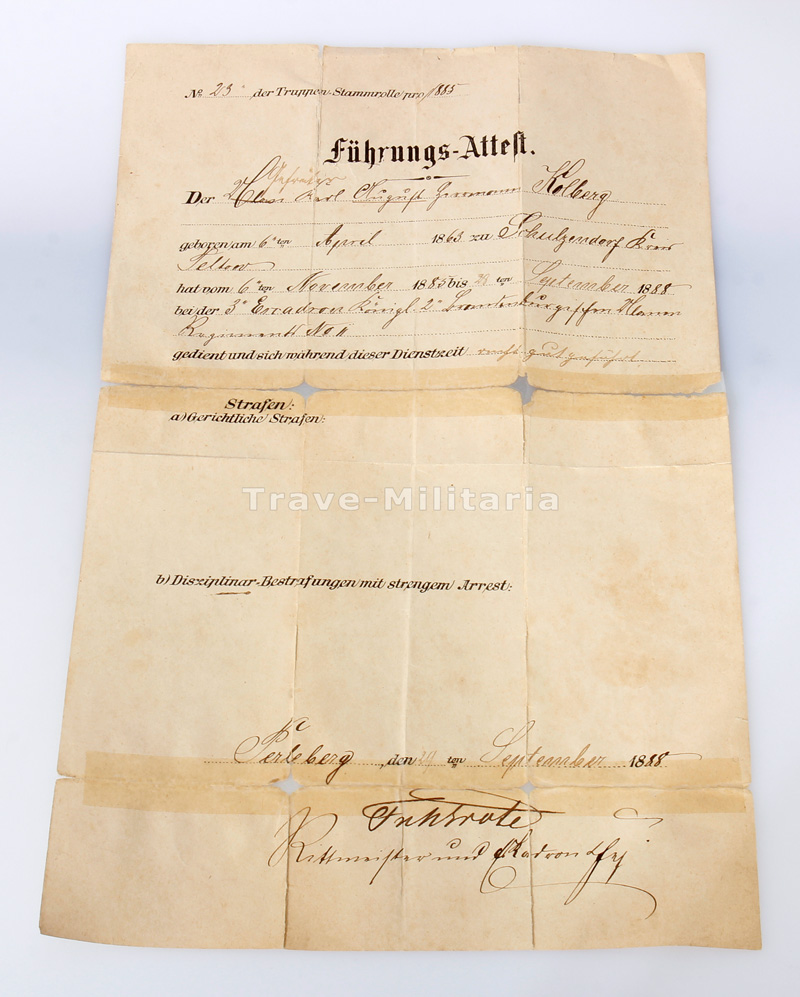 No 23 der Truppen-Stammrolle pro 1885
Führungs-Attest.
Gefreiter
Der Ulan Karl August Hermann Kolberg
geboren am 6ten April 1863 zu Schulzendorf Kreis
Teltow
hat vom 6ten November 1885 bis ten September 1888
bei der 3n Escadron Königl. 2n Brandenburgischen Ulanen
Regiments No 11
gedient und sich während dieser Dienstzeit recht gut geführt
Strafen:
a) Gerichtliche Strafen:
Trave-Militaria
b) Disziplinar-Bestrafungen mit strengem Arrest:
Perleberg, den 29 ten September 1888
Rittmeister und Eskadron Chef